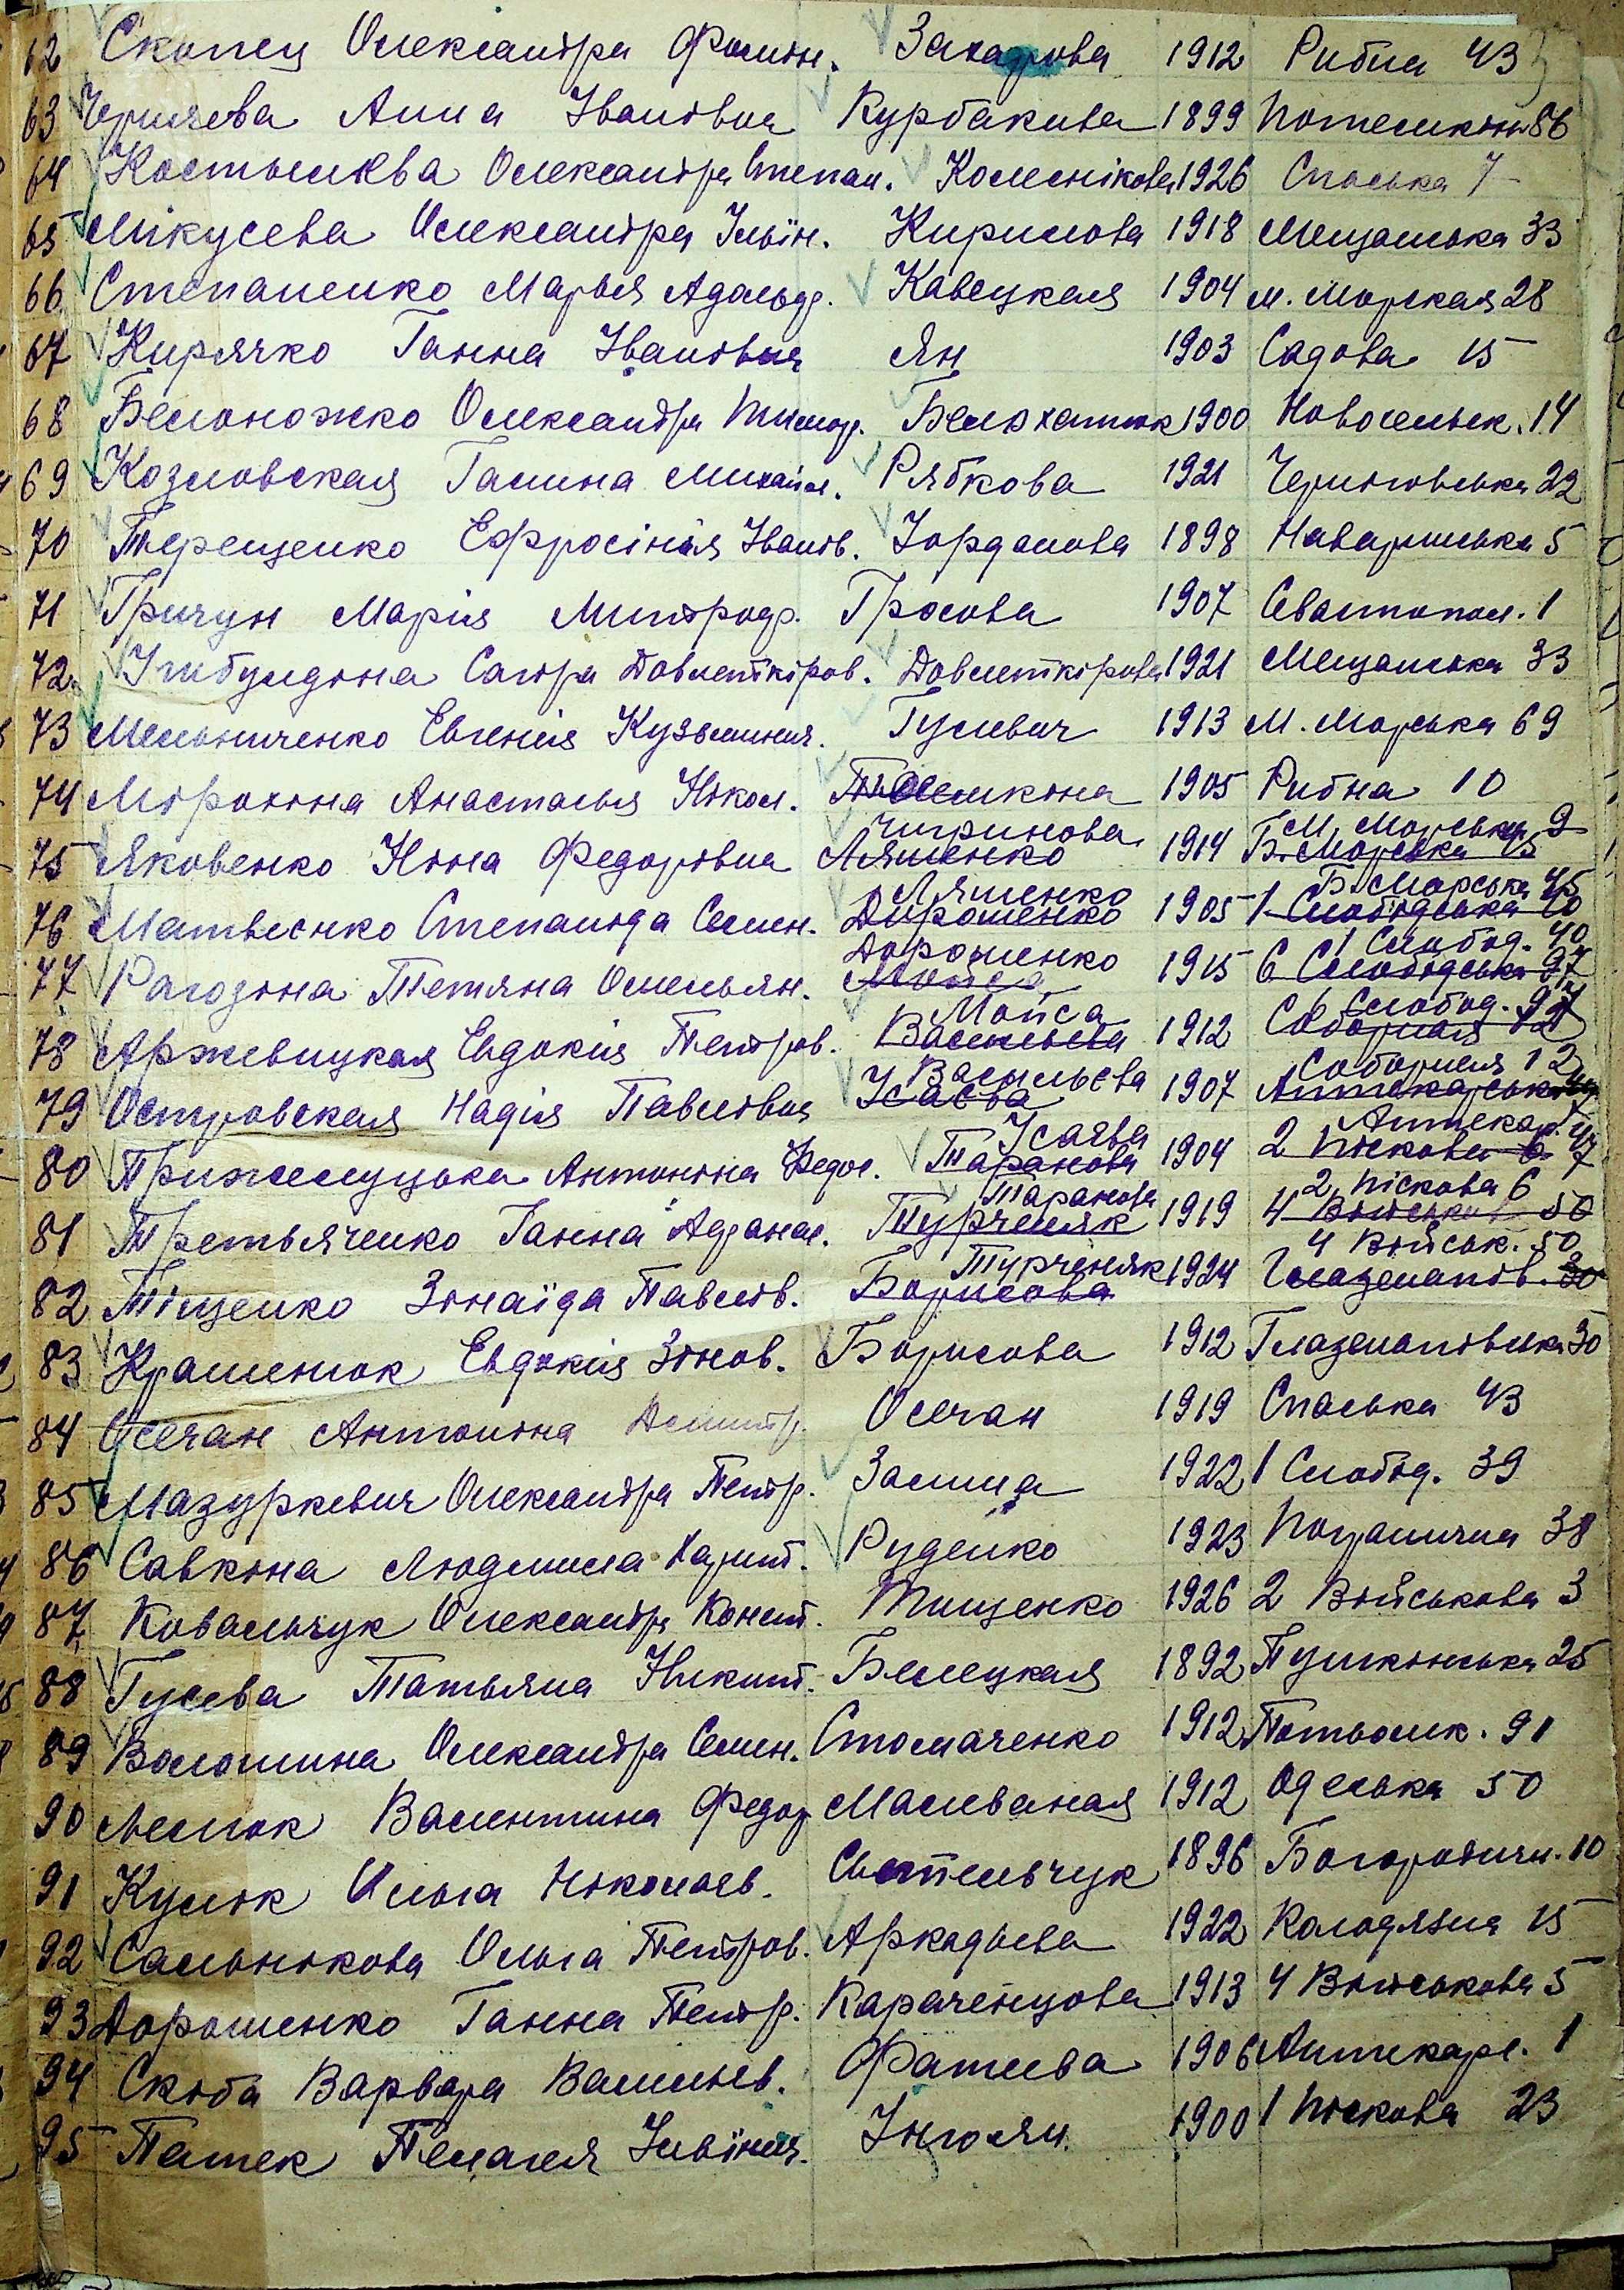 62 Скопец Олександра Фомін. Захарова 1912 Рибна 43
63 Черняева Анна Івановна Курбакива 1899 Потемкін 86
64 Костымква Олександра Степан. Колеснікова 1926 Спаська 7
65 Мікусева Олександра Ільїн. Кирилова 1918 Мещанська 33
66 Степаненко Марья Адольф. Кавецкая 1904 М. Морская 28
67 Кирячко Ганна Івановна Ян 1903 Садова 15
68 Белоножко Олександра Тимоф. Белохатнюк 1900 Новосельск. 14
69 Козловская Галина Михайл. Рябкова 1921 Черниговська 22
70 Терещенко Ефросінія Іванів. Іорданова 1898 Наваринська 5
71 Гричун Марія Митроф. Гросова 1907 Севастопол. 1
72 Ішбулдіна Сагра Довлеткіров. Довлеткірова 1921 Мещанська 33
73 Мельниченко Евгенія Кузьмінич. Гулевич 1913 М. Морська 69
74 Мірохіна Анастасья Нікол. Темкіна 1905 Рибна 10
Чигринова М. Морська 9
75 Яковенко Ніна Федорівна Ляшенко 1914 Б. Морська 45
Ляшенко Б. Морська 45
76 Матвеєнко Степаніда Семен. Дорошенко 1905 1 Слобідська 40
Дорошенко 1 Слобод. 40
77 Рагозіна Тетяна Омельян. Мойса 1915 6 Слобідська 97
Мойса 6 Слобод. 97
78 Аржевицкая Евдокія Петров. Васильєва 1912 Соборная 12
Васильєва Соборная 12
79 Островская Надія Павлівна Ісаєва 1907 Аптекарська 47
Ісаєва Аптекар. 47
80 Прижелуцька Антоніна Федос. Таранова 1904 2 Піскова 6
Таранова 2 Піскова 6
81 Третьяченко Ганна Афанас. Турченяк 1919 4 Військ 50
Турченяк 4 Військ. 50
82 Тіщенко Зінаїда Павлів. Борисова 1924 Глазенапів. 30
83 Крашенюк Евдокія Зінов. Борисова 1912 Глазенапівська 30
84 Осечан Антоніна Дмитр. Осечан 1919 Спаська 43
85 Мазуркевич Олександра Петр. Залища 1922 1 Слобід. 39
86 Савкіна Людмила Харит. Руденко 1923 Погранична 38
87 Ковальчук Олександра Конст. Тищенко 1926 2 Військова 3
88 Гусева Татьяна Никит. Белецкая 1892 Пушкінська 25
89 Волошина Олександра Семен. Столяченко 1912 Потьомк. 91
90 Лесюк Валентина Федор Малеваная 1912 Одеська 50
91 Кулік Ольга Ніколаєв. Свательчук 1896 Богородичн. 10
92 Сальнікова Ольга Петров. Аркадьева 1922 Колодязна 15
93 Дорошенко Ганна Петр. Караченцова 1913 4 Військова 5
94 Скіба Варвара Васильєв. Фатеева 1906 Аптекарс. 1
95 Патек Пелагея Ільїнич. Інгоян. 1900 1 Піскова 23